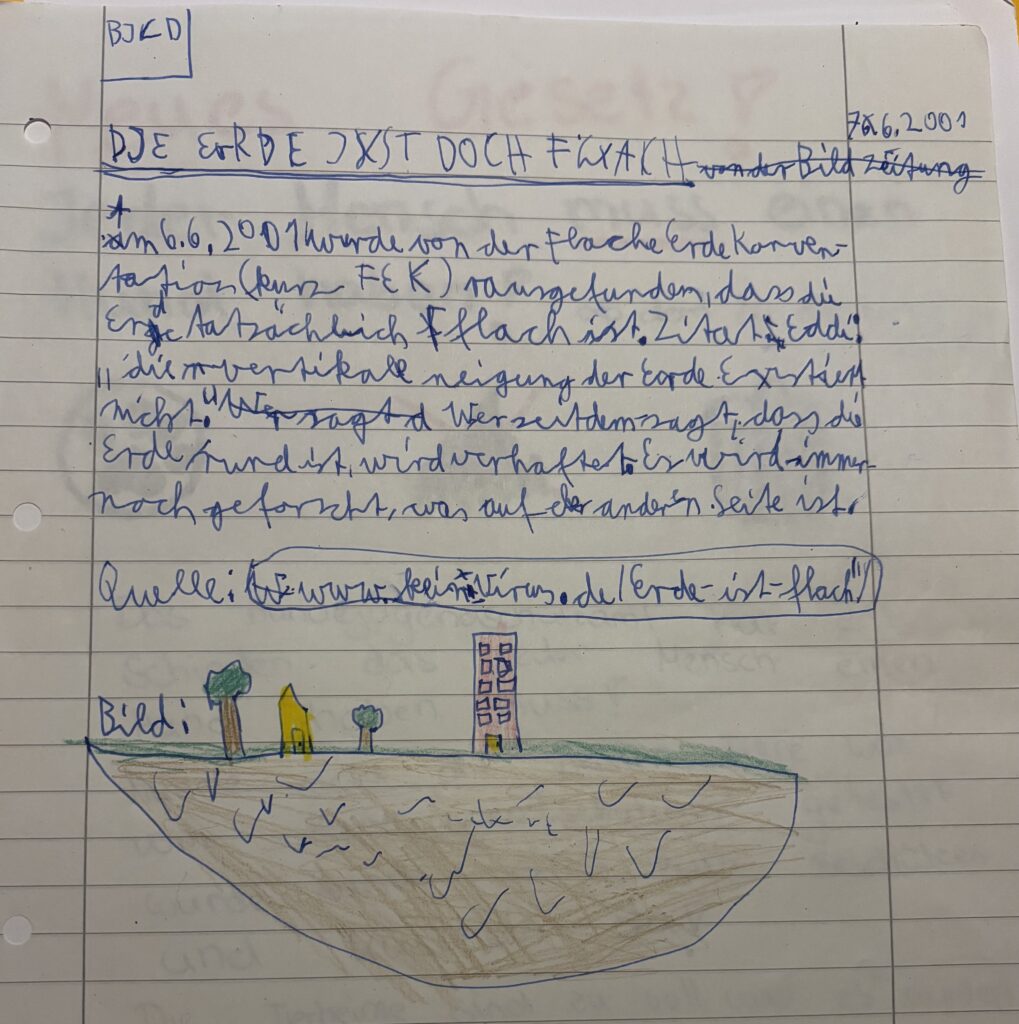 BILD
7.6.2001
DIE ErRDE IST DOCH FLACH von der Bild Zeitung
Am 6.6.2001 wurde von der Flache Erde Konven-
tation (kurz FEK) rausgefunden, dass die
Erde Tatsächlich flach ist. Zitat Eddi:
"die vertikale neigung der Eorde Existiert
nicht." Wer sagt d Wer seitdem sagt, dass die
Erde rund ist, wird verhaftet. Es wird immer
noch geforscht, was auf der andern Seite ist.
Quelle: www.kein-Virus.de/Erde-ist-flach"/
Bild: